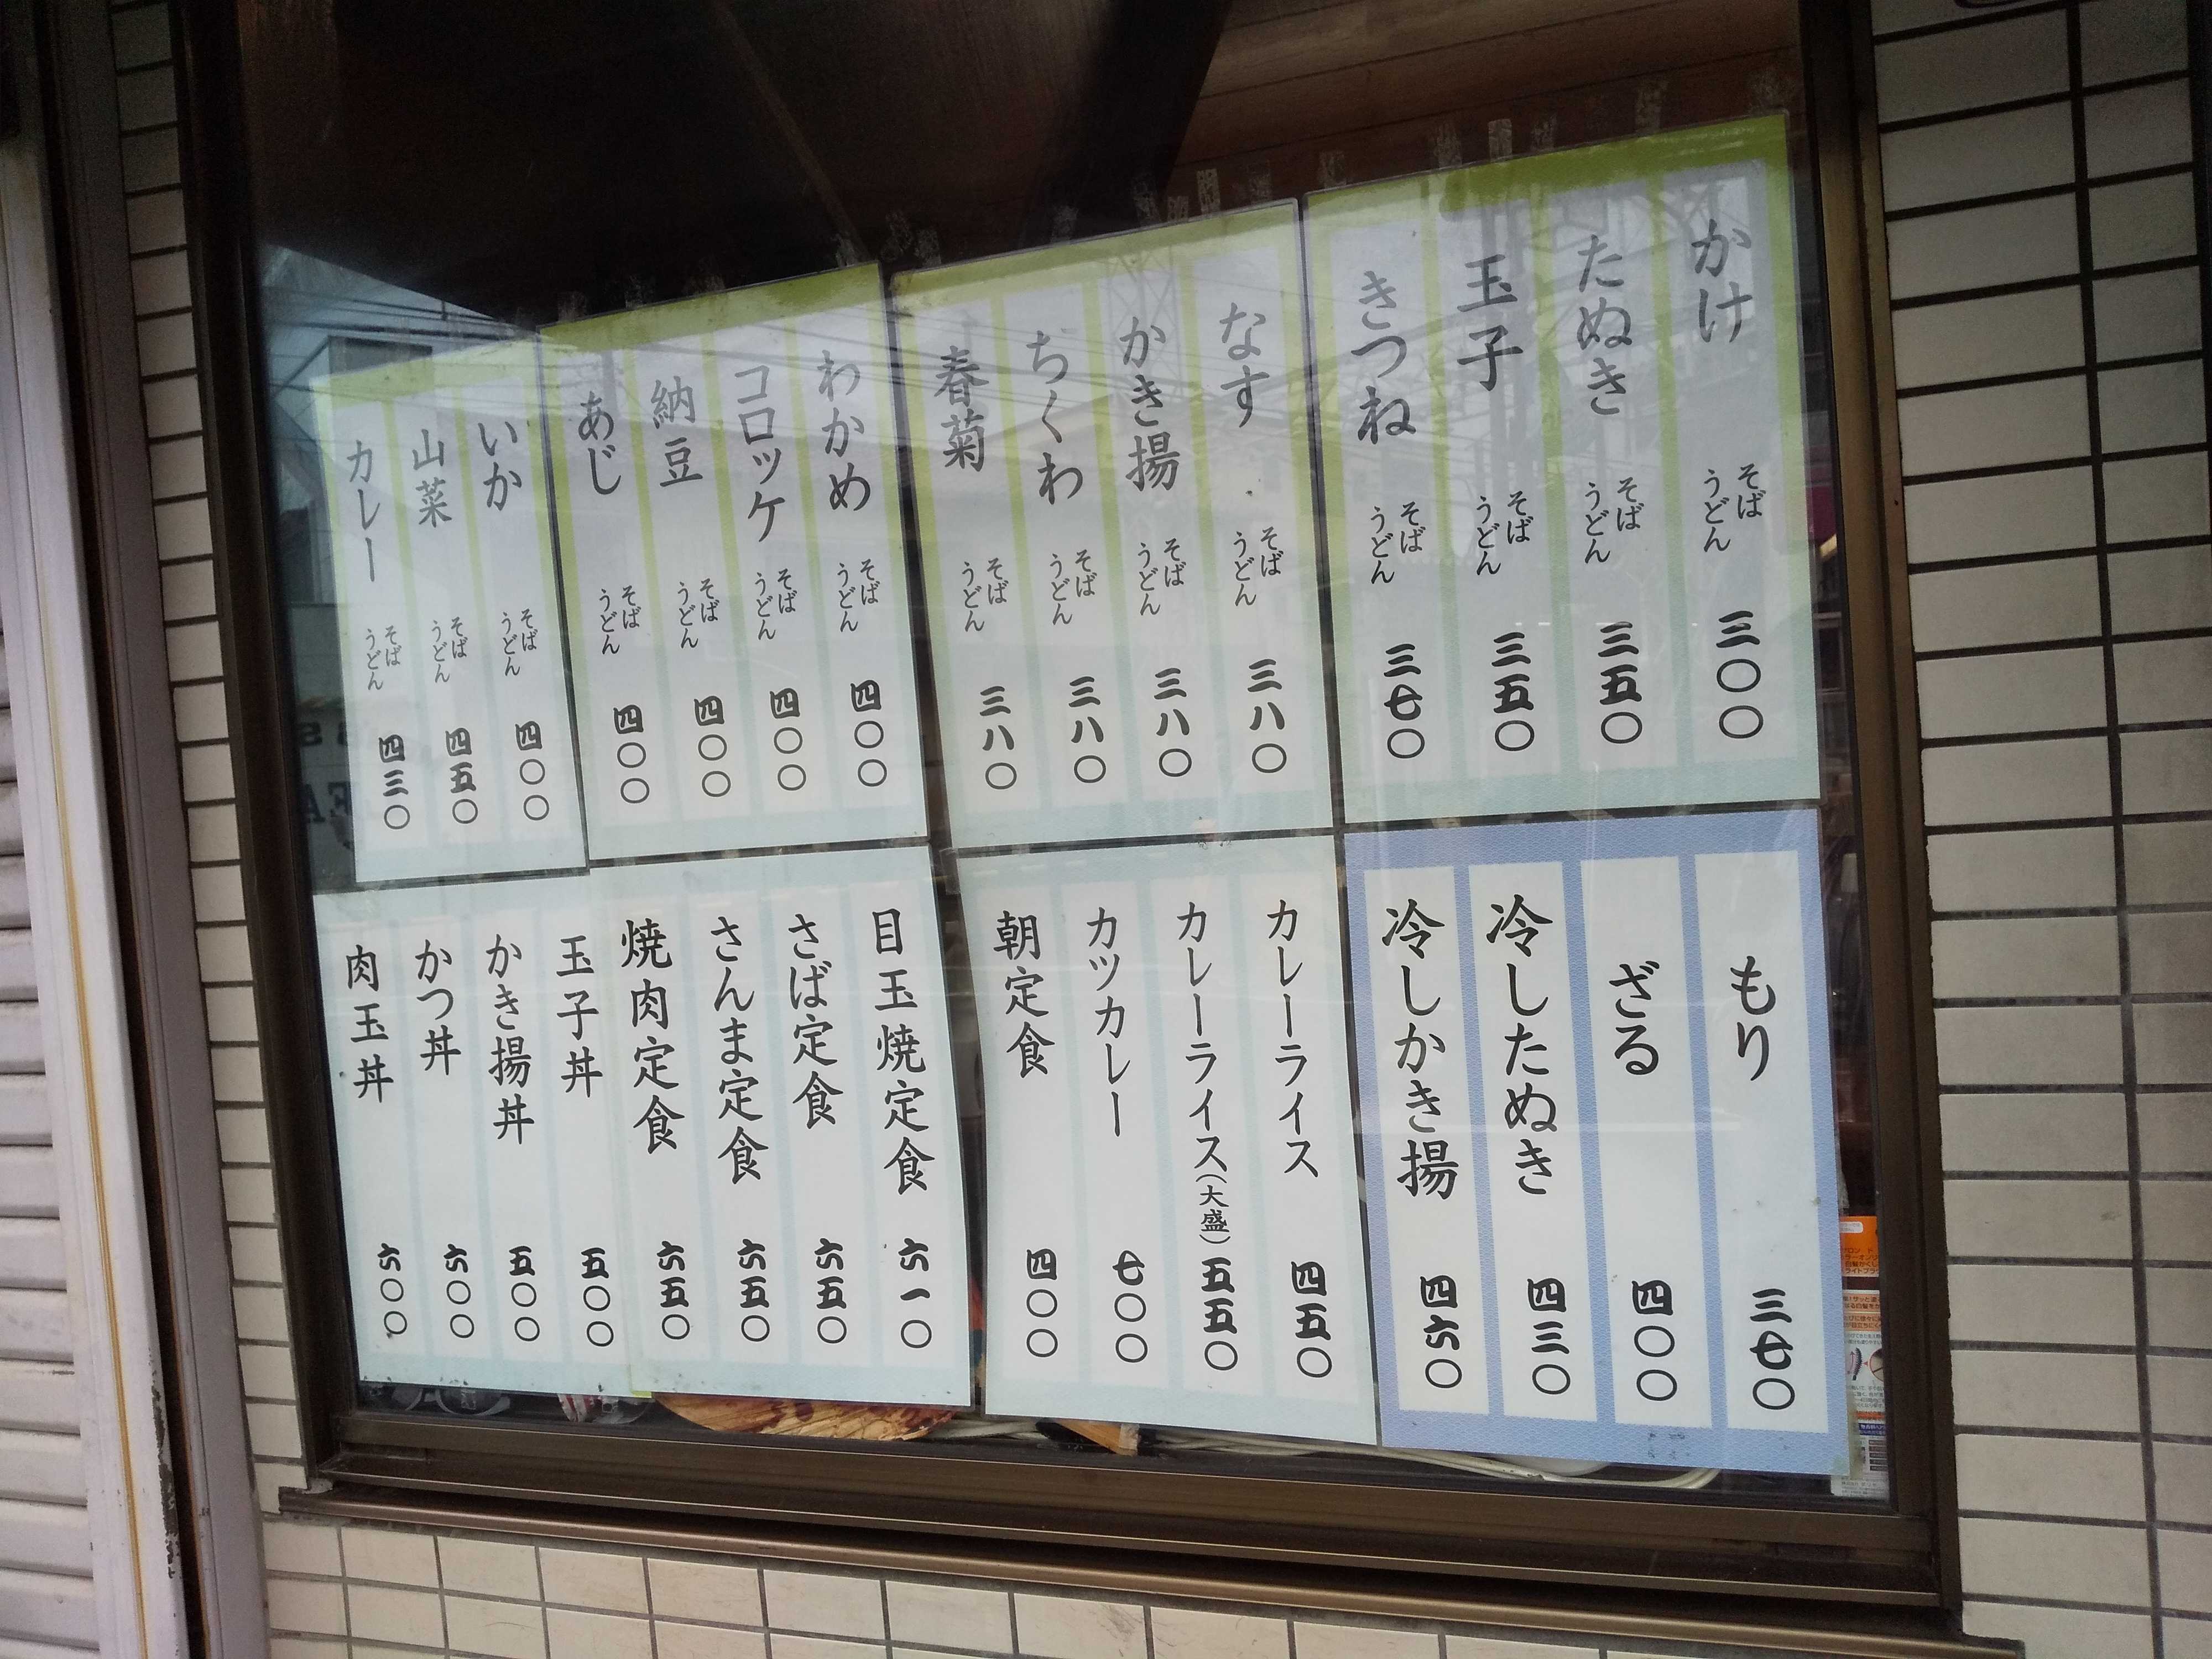 かけ そば うどん 三〇〇
たぬき そば うどん 三五〇
玉子 そば うどん 三五〇
きつね そば うどん 三七〇
なす そば うどん 三八〇
かき揚 そば うどん 三八〇
ちくわ そば うどん 三八〇
春菊 そば うどん 三八〇
わかめ そば うどん 四〇〇
コロッケ そば うどん 四〇〇
納豆 そば うどん 四〇〇
あじ そば うどん 四〇〇
いか そば うどん 四〇〇
山菜 そば うどん 四五〇
カレー そば うどん 四三〇
もり 三七〇
ざる 四〇〇
冷したぬき 四三〇
冷しかき揚 四六〇
カレーライス 四五〇
カレーライス(大盛) 五五〇
カツカレー 七〇〇
朝定食 四〇〇
目玉焼定食 六一〇
さば定食 六五〇
さんま定食 六五〇
焼肉定食 六五〇
玉子丼 五〇〇
かき揚丼 五〇〇
かつ丼 六〇〇
肉玉丼 六〇〇